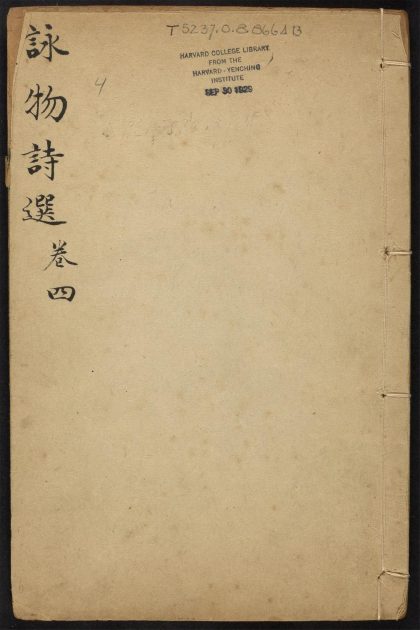 詠物詩選
卷四
T5237.0.8.8661B
4
HARVARD COLLEGE LIBRARY
FROM THE
HARVARD-YENCHING
INSTITUTE
SEP 30 1929